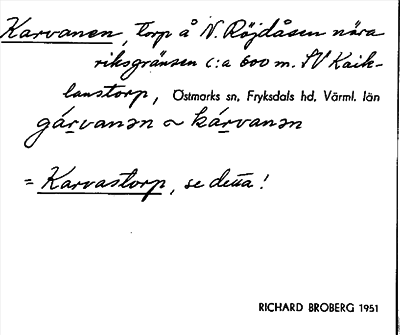 Karvanen, torp å N. Röjdåsen nära
riksgränsen c:a 600 m. SV Kaik-
lanstorp, Östmarks sn, Fryksdals hd, Värml. län
gárvanən ~ kárvanən
= Karvastorp, se detta!
RICHARD BROBERG 1951